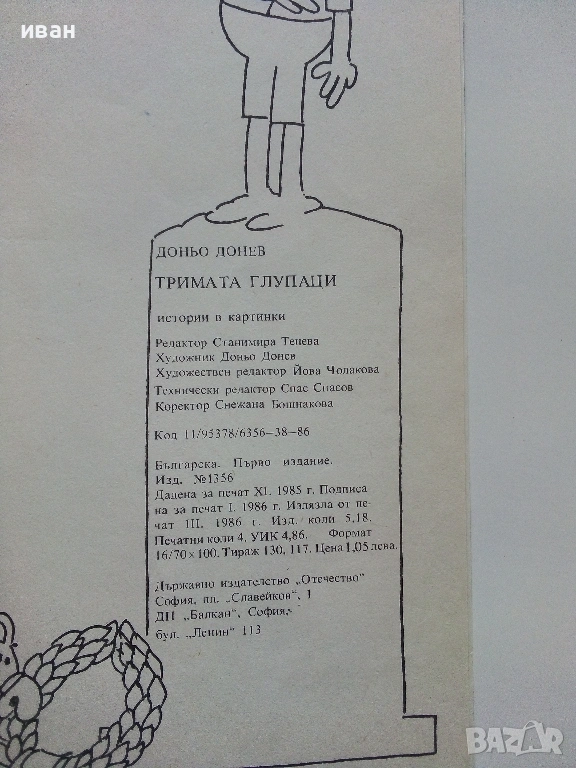 иван
ДОНЬО ДОНЕВ
ТРИМАТА ГЛУПАЦИ
истории в картинки
Редактор Станимира Тенева
Художник Доньо Донев
Художествен редактор Йова Чолакова
Технически редактор Спас Спасов
Коректор Снежана Бошнакова
Код 11/95378/6356—38—86
Българска. Първо издание.
Изд. №1356
Дадена за печат XI. 1985 г. Подписа
на за печат I. 1986 г. Излязла от пе-
чат III. 1986 г. Изд. коли 5,18.
Печатни коли 4. УИК 4,86. Формат
16/70×100. Тираж 130, 117. Цена 1,05 лева.
Държавно издателство „Отечество“
София, пл. „Славейков“, 1
ДП „Балкан“, София,
бул. „Ленин“ 113
BAZAR